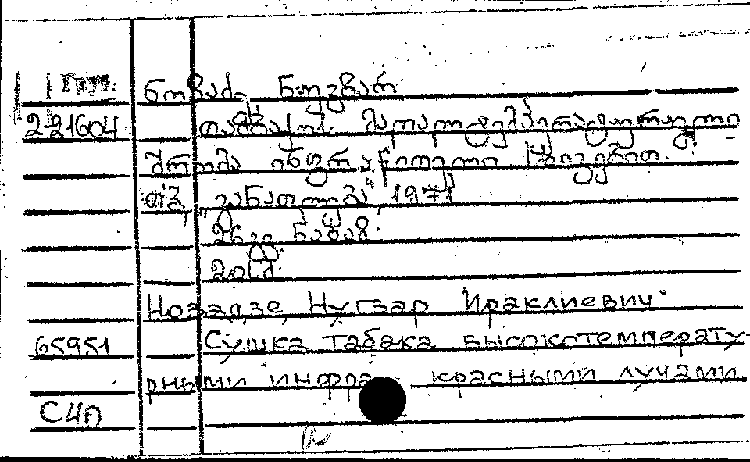 ნოზაძე ნუგზარ
221604 თამბაქოს მაღალტემპერატურული
შრობა ინფრაწითელი სხივებით.
თბ. "განათლება", 1971
გვ. ნახაზ.
Нозадзе, Нугзар Ираклиевич.
65951 Сушка табака высокотемперату-
рными инфра красными лучами.